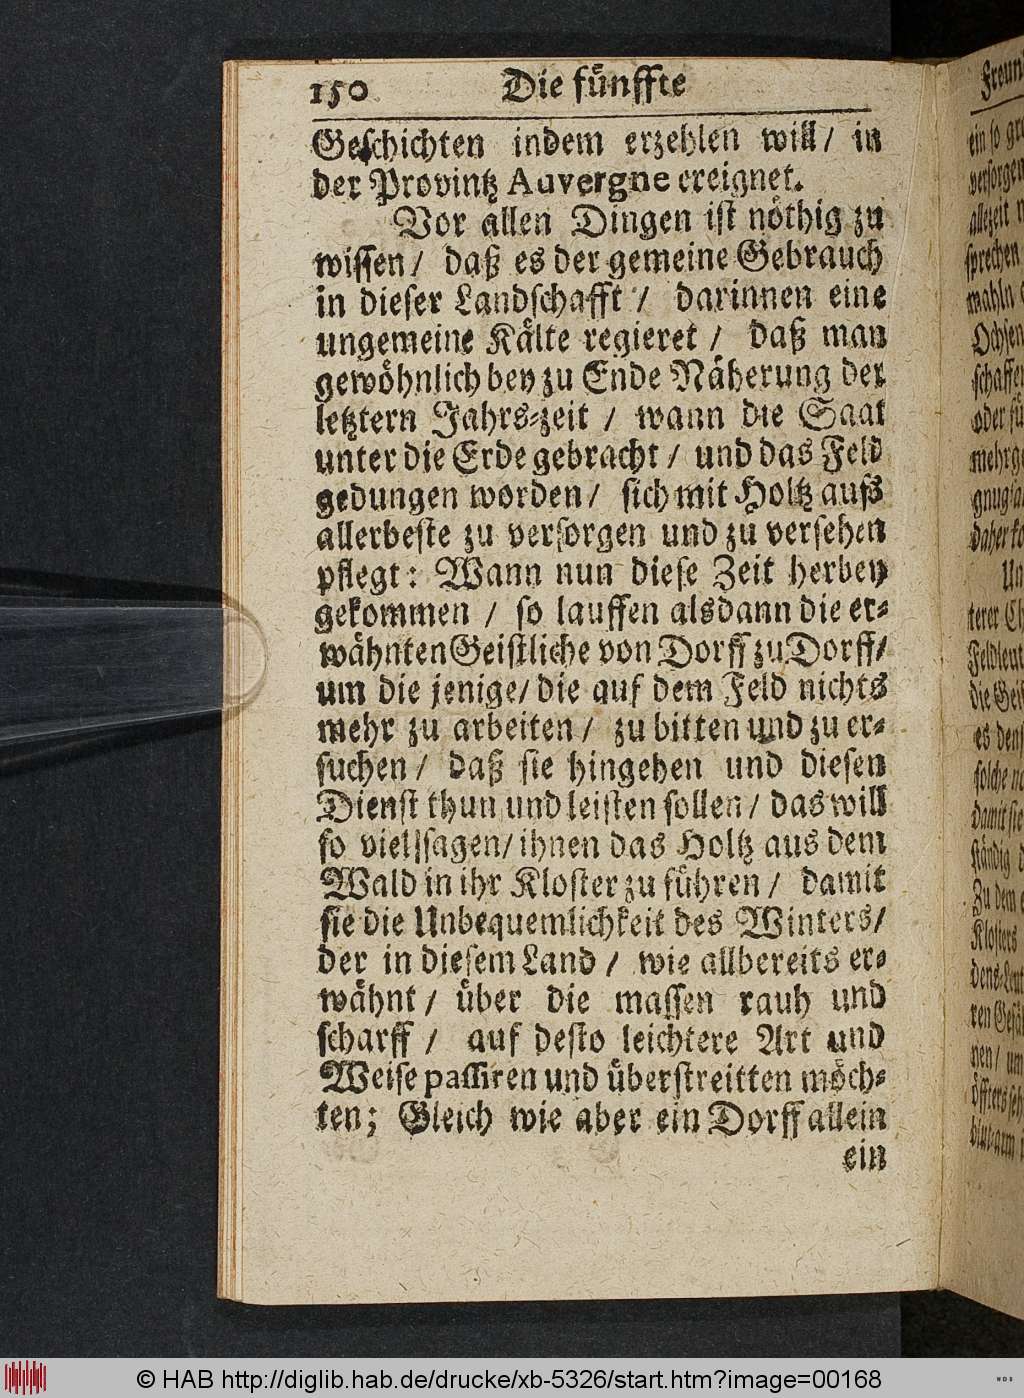 150 Die fünffte
Geschichten indem erzehlen will / in
der Provintz Auvergne ereignet.
Vor allen Dingen ist nöthig zu
wissen / daß es der gemeine Gebrauch
in dieser Landschafft / darinnen eine
ungemeine Kälte regieret / daß man
gewöhnlich bey zu Ende Näherung der
letztern Jahrs-zeit / wann die Saat
unter die Erde gebracht / und das Feld
gedungen worden / sich mit Holtz aufs
allerbeste zu versorgen und zu versehen
pflegt: Wann nun diese Zeit herbey
gekommen / so lauffen alsdann die er-
wähnten Geistliche von Dorff zu Dorff /
um die jenige / die auf dem Feld nichts
mehr zu arbeiten / zu bitten und zu er-
suchen / daß sie hingehen und diesen
Dienst thun und leisten sollen / das will
so viel sagen / ihnen das Holtz aus dem
Wald in ihr Kloster zu führen / damit
sie die Unbequemlichkeit des Winters /
der in diesem Land / wie allbereits er-
wähnt / über die massen rauh und
scharff / auf desto leichtere Art und
Weise passiren und überstreitten möch-
ten; Gleich wie aber ein Dorff allein
ein
ein so
allezeit
sprechen
Ochsen
schaffen
oder
daher
Un
Feldleut
es
solche
damit sie
ständig
Zu dem
Klosters
nen / um
© HAB http://diglib.hab.de/drucke/xb-5326/start.htm?image=00168